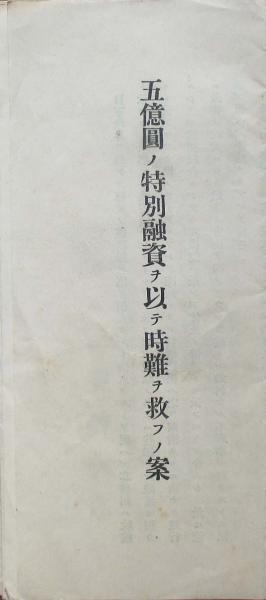 五億圓ノ特別融資ヲ以テ時難ヲ救フノ案